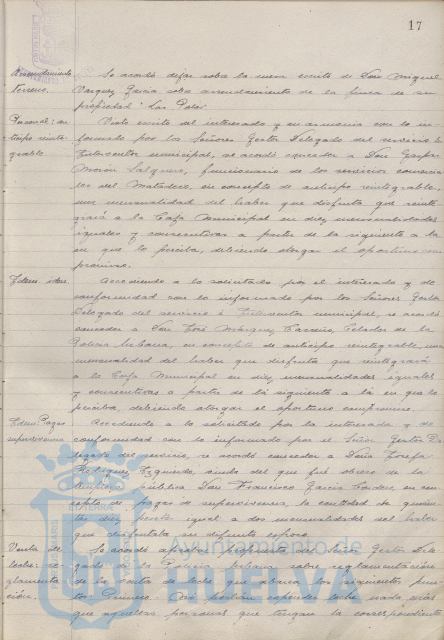 17
Arrendamiento Se acordó dejar sobre la mesa escrito de Don Miguel
terreno. Vázquez García sobre arrendamiento de la finca de su
propiedad "Las Palos
Personal: an- Visto escrito del interesado y en armonía con lo in-
ticipo reinte- formado por los Señores Gestor Delegado del servicio e
grable Interventor municipal, se acordó conceder a Don Gaspar
Morón Salguero, funcionario de los servicios comercia-
les del Matadero, en concepto de anticipo reintegrable,
una mensualidad del haber que disfruta que reinte-
grará a la Caja Municipal en diez mensualidades
iguales y consecutivas a partir de la siguiente a la
en que lo perciba, debiendo otorgar el oportuno com-
promiso.
Idem. idem. Accediendo a lo solicitado por el interesado y de
conformidad con lo informado por los Señores Gestor
Delegado del servicio e Interventor municipal, se acordó
conceder a Don José Márquez Carreño, Celador de la
Policía Urbana, en concepto de anticipo reintegrable, una
mensualidad del haber que disfruta que reintegrará
a la Caja Municipal en diez mensualidades iguales
y consecutivas a partir de la siguiente a la en que lo
perciba, debiendo otorgar el oportuno compromiso.
Idem: Pagas Accediendo a lo solicitado por la interesada y de
supervivencia conformidad con lo informado por el Señor Gestor De-
legado del servicio, se acordó conceder a Doña Josefa
Rodríguez Izquierdo, viuda del que fué obrero de la
Limpieza pública Don Francisco García Cordero, en con-
cepto de pagas de supervivencia, la cantidad de
pesetas igual a dos mensualidades del haber
que disfrutaba su difunto esposo.
Venta de Se acordó aprobar propuesta del Señor Gestor Dele-
leche: re- gado de la Policía Urbana sobre reglamentación
glamenta- de la venta de leche que abarca los siguientes pun-
ción. tos: Primero. Que podrán expender leche nada más
que aquellas personas que tengan la correspondiente
Ayuntamiento de
HUELVA